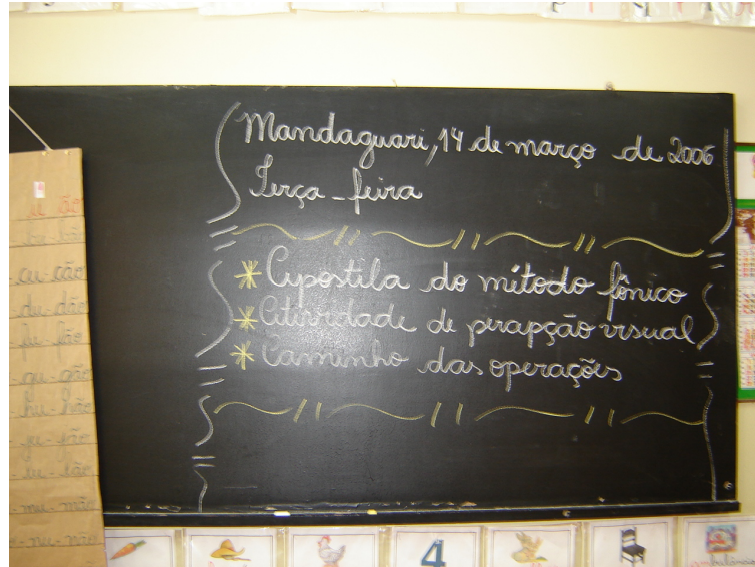 Mandaguari, 14 de março de 2006
Terça-feira
* Apostila do método fônico
* Atividade de percepção visual
* Caminho das operações
ão
cu - cão
du - dão
fu - fão
gu - gão
hu - hão
ju - jão
mu - mão
nu - não
4